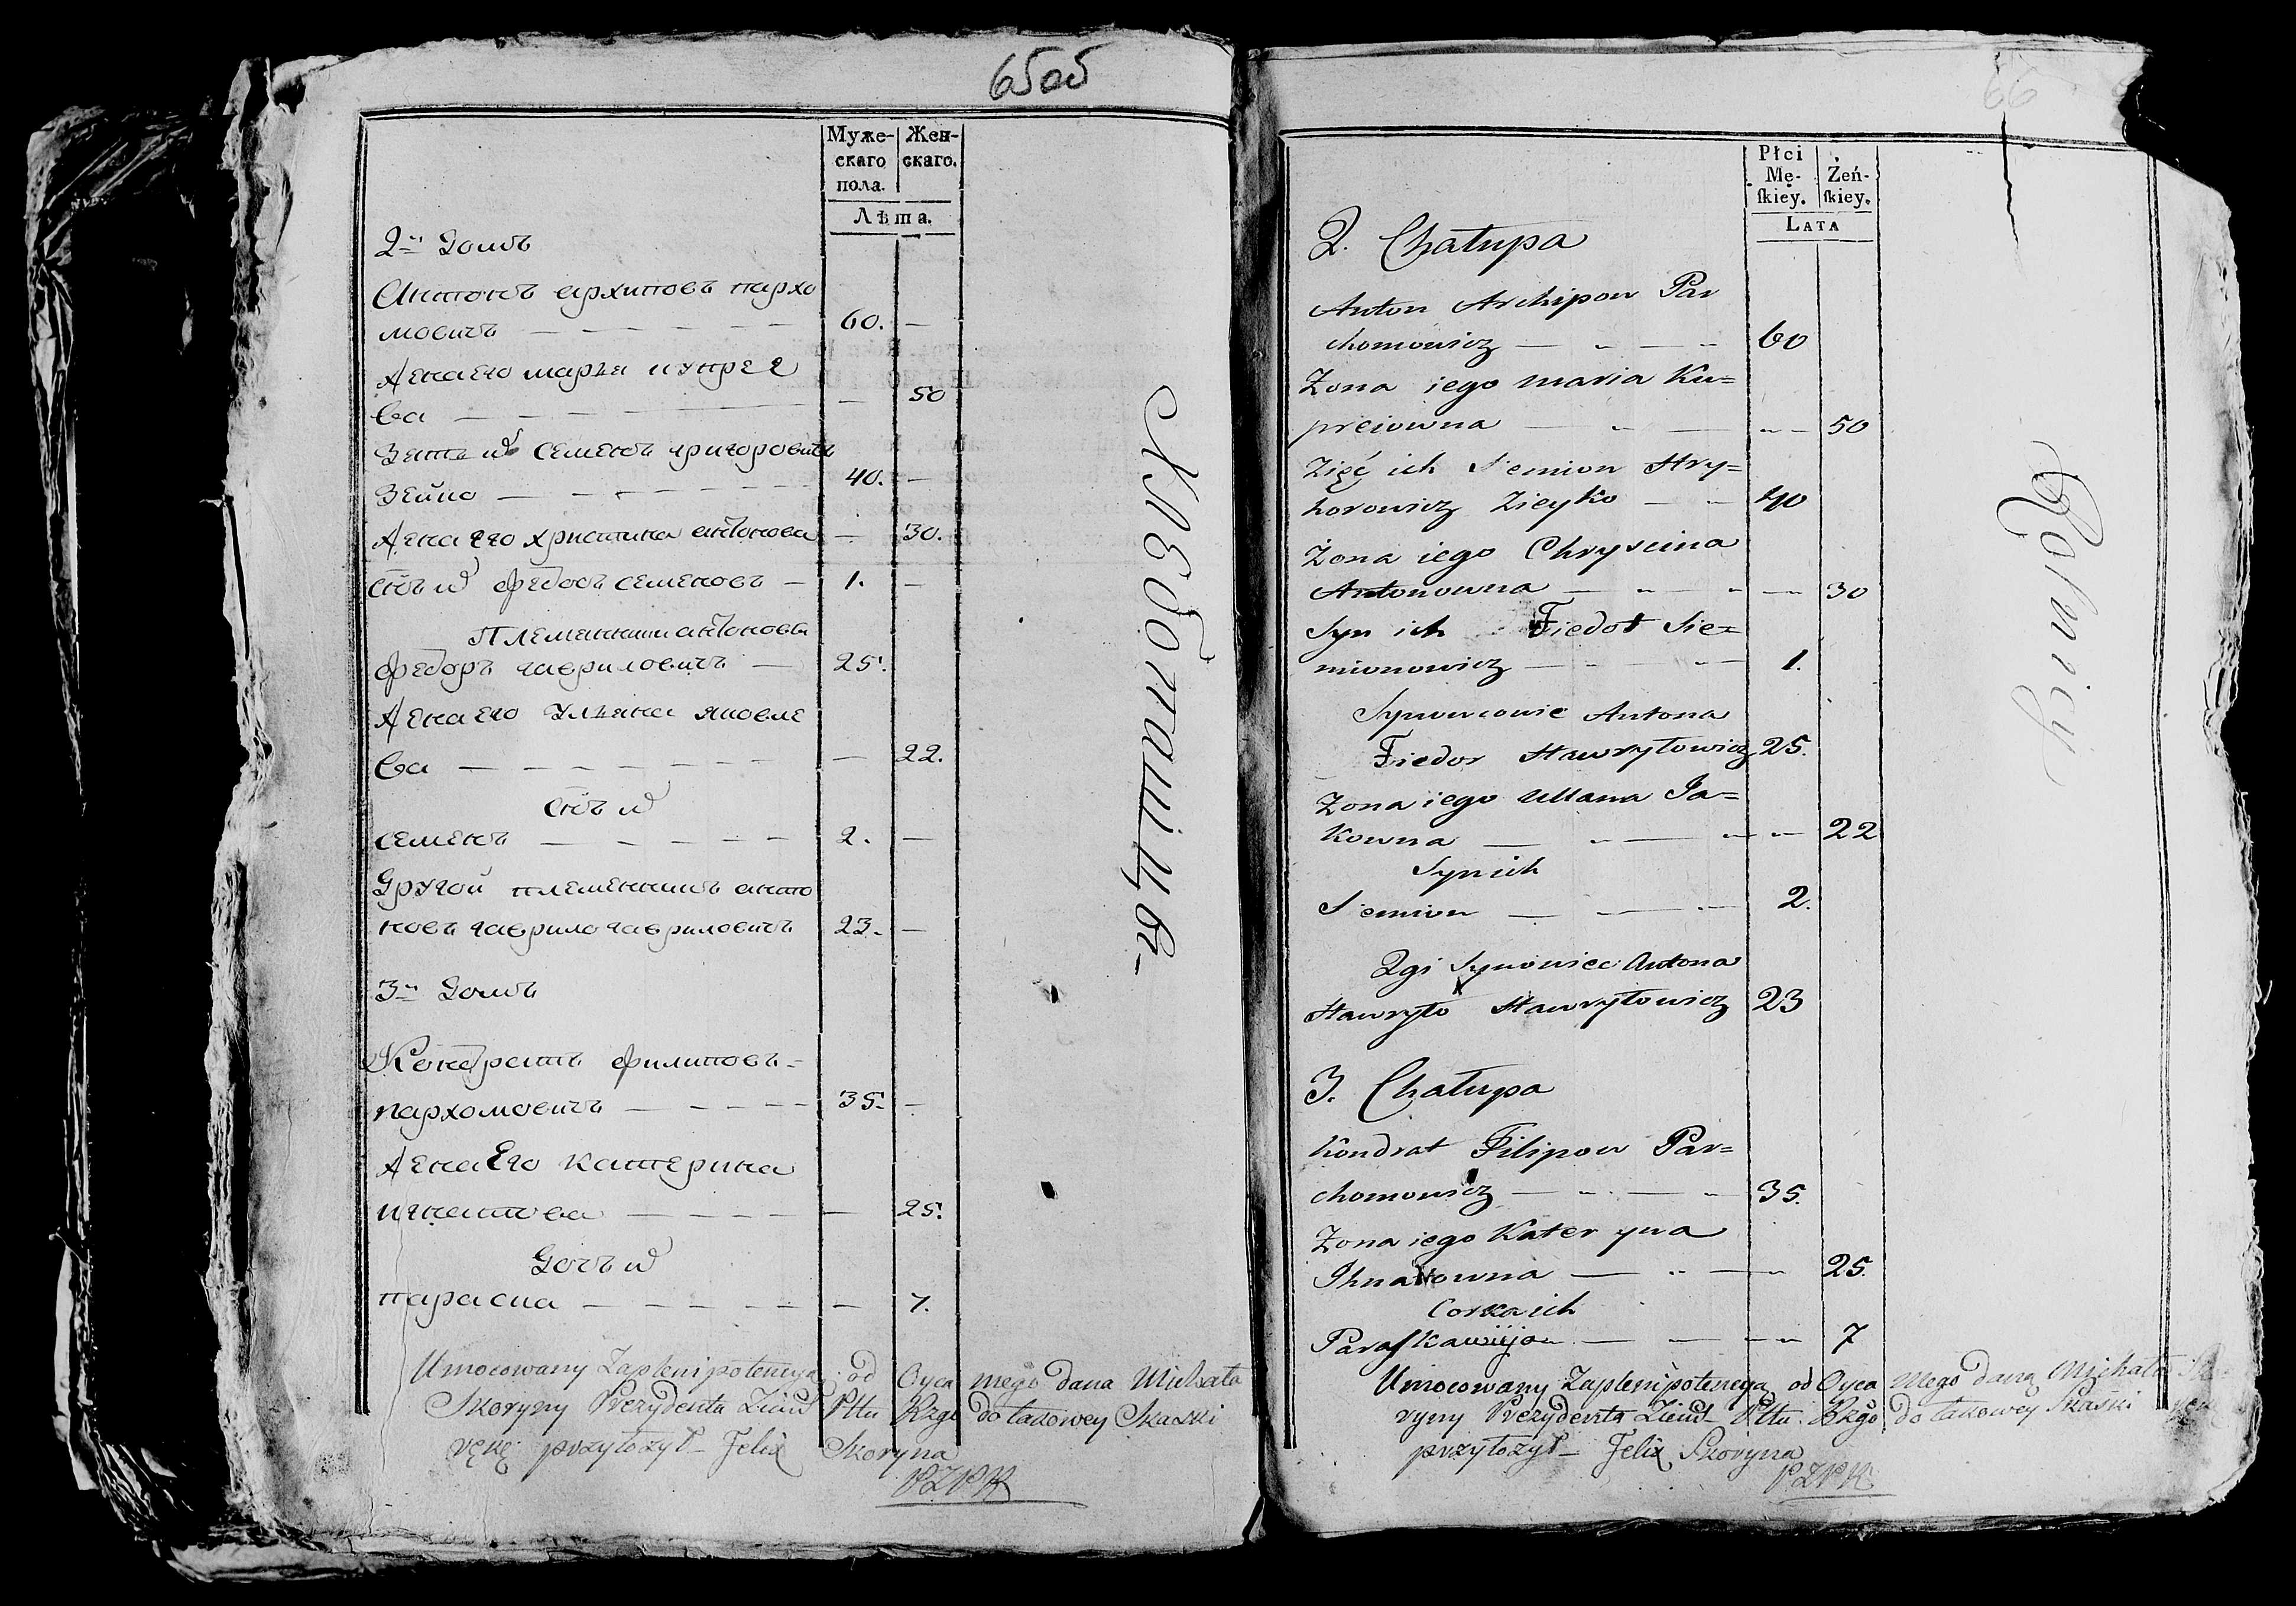 65об
Муже-
скаго
пола.
Жен-
скаго.
Лѣта.
2й Домъ
Антонъ архиповъ пархо
мовичъ — 60. —
Жена его марья купрее
ва — — 50
Зять ихъ Семенъ григоровичъ
Зейко — 40. —
Жена его христина антонова — 30.
Сынъ ихъ федосъ семеновъ — 1. —
Племянники антоновы
федоръ гавриловичъ — 25. —
Жена его Ульяна яковле
ва — — 22.
Сынъ ихъ
семенъ — 2. —
Другой племянникъ анто
новъ гаврило гавриловичъ 23. —
3й Домъ
Кондратъ филиповъ
пархомовичъ — 35. —
Жена Его катерина
игнатова — — 25.
Дочь ихъ
параска — — 7.
Хлебопашцы
Umocowany Zaplenipotencyą od Oyca mego dana Michała
Skoryny Prezydenta Ziems Pttu Rzgo do takowey Skaski
rękę przyłożył Felix Skoryna
PZPR
66
Płci
Mę-
skiey.
Żeń-
skiey.
LATA
2. Chałupa
Anton Archipow Par
chomowicz — 60
Żona iego maria Ku=
preiowna — 50
Zięć ich Siemion Hry=
horowicz Zieyko — 40
Żona iego Chryscina
Antonowna — 30
Syn ich Fiedot Sie=
mionowicz — 1.
Synowcowie Antona
Fiedor Hawryłowicz 25.
Żona iego Ullana Ja=
kowna — 22
Syn ich
Siemion — 2.
2gi Synowiec Antona
Hawryło Hawryłowicz 23
3. Chałupa
Kondrat Filipow Par=
chomowicz — 35.
Żona iego Kateryna
Ihnatowna — 25.
Corka ich
Paraskawija — 7
Rolnicy
Umocowany Zaplenipotencyą od Oyca Mego daną Michała Sko-
ryny Prezydenta Ziems Pttu Rzgo do takowey Skaski rękę
przyłożył Felix Skoryna
PZPR